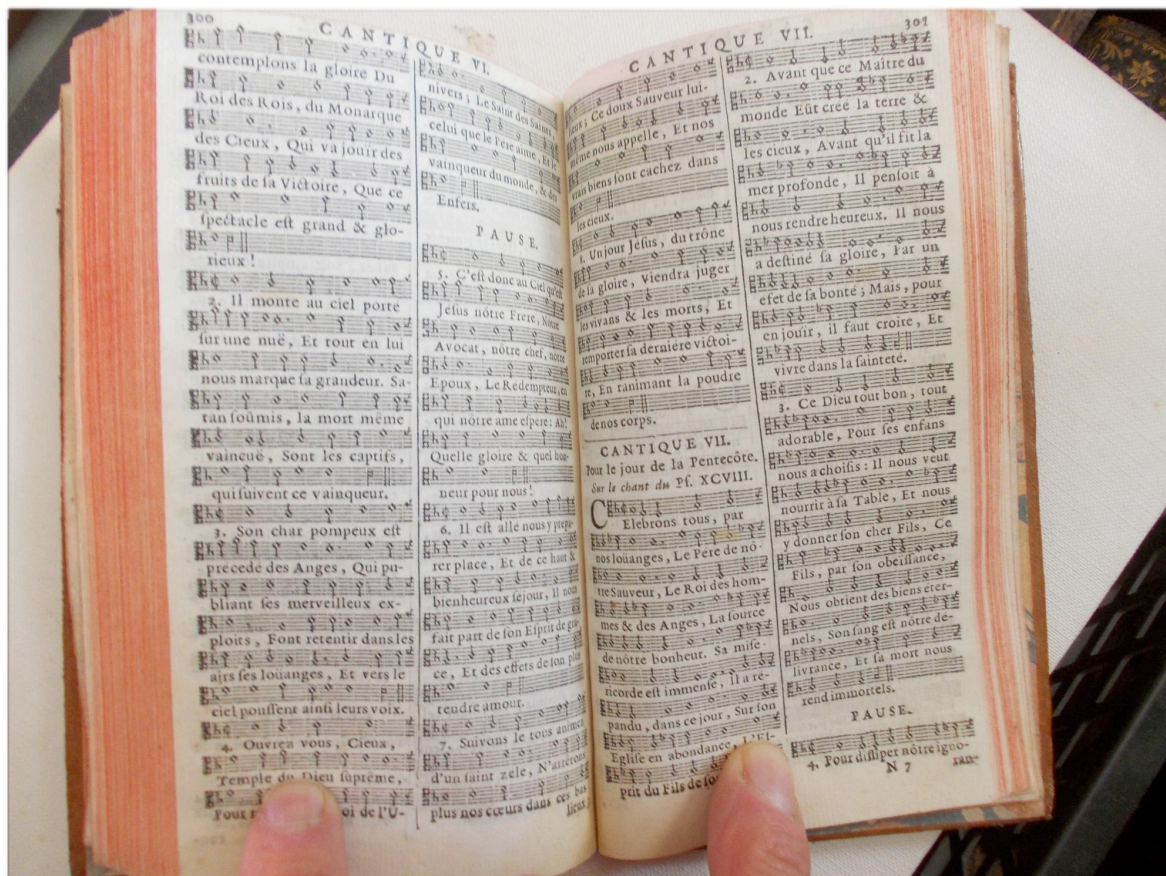 300
CANTIQUE VI.
contemplons la gloire Du
Roi des Rois, du Monarque
des Cieux, Qui va jouïr des
fruits de ſa Victoire, Que ce
ſpectacle eſt grand & glo-
rieux !
2. Il monte au ciel porté
ſur une nuë, Et tout en lui
nous marque ſa grandeur. Sa-
tan ſoûmis, la mort même
vaincuë, Sont les captifs,
qui ſuivent ce vainqueur.
3. Son char pompeux eſt
précedé des Anges, Qui pu-
bliant ſes merveilleux ex-
ploits, Font retentir dans les
airs ſes loüanges, Et vers le
ciel pouſſent ainſi leurs voix.
4. Ouvrez vous, Cieux,
Temple du Dieu ſuprème,
Pour oi de l'U-
nivers ; Le Saint des Saints,
celui que le Pere aime, Et le
vainqueur du monde, & des
Enfers.
PAUSE.
5. C'eſt donc au Ciel qu'eſt
Jeſus nôtre Frere, Nôtre
Avocat, nôtre chef, nôtre
Epoux, Le Redempteur, en
qui nôtre ame eſpere: Ah!
Quelle gloire & quel hon-
neur pour nous !
6. Il eſt allé nous y prepa-
rer place, Et de ce haut &
bienheureux ſejour, Il nous
fait part de ſon Eſprit de gra-
ce, Et des effets de ſon plus
tendre amour.
7. Suivons le tous animez
d'un ſaint zele, N'arrêtons
plus nos cœurs dans ces bas
lieux;
301
CANTIQUE VII.
lieux ; Ce doux Sauveur lui-
même nous appelle, Et nos
vrais biens ſont cachez dans
les cieux.
8. Un jour Jeſus, du trône
de ſa gloire, Viendra juger
les vivans & les morts, Et
remporter ſa derniére victoi-
re, En ranimant la poudre
de nos corps.
CANTIQUE VII.
Pour le jour de la Pentecôte.
Sur le chant du Pſ. XCVIII.
CElebrons tous, par
nos loüanges, Le Pére de nô-
tre Sauveur, Le Roi des hom-
mes & des Anges, La ſource
de nôtre bonheur. Sa miſe-
ricorde eſt immenſe, Il a ré-
pandu, dans ce jour, Sur ſon
Egliſe en abondance, L'Eſ-
prit du Fils de ſon
2. Avant que ce Maître du
monde Eût créé la terre &
les cieux, Avant qu'il fit la
mer profonde, Il penſoit à
nous rendre heureux. Il nous
a deſtiné ſa gloire, Par un
efet de ſa bonté ; Mais, pour
en jouïr, il faut croire, Et
vivre dans la ſainteté.
3. Ce Dieu tout bon, tout
adorable, Pour ſes enfans
nous a choiſis : Il nous veut
nourrir à ſa Table, Et nous
y donner ſon cher Fils, Ce
Fils, par ſon obeïſſance,
Nous obtient des biens éter-
nels, Son ſang eſt nôtre dé-
livrance, Et ſa mort nous
rend immortels.
PAUSE.
4. Pour diſſiper nôtre igno-
N 7
ran-